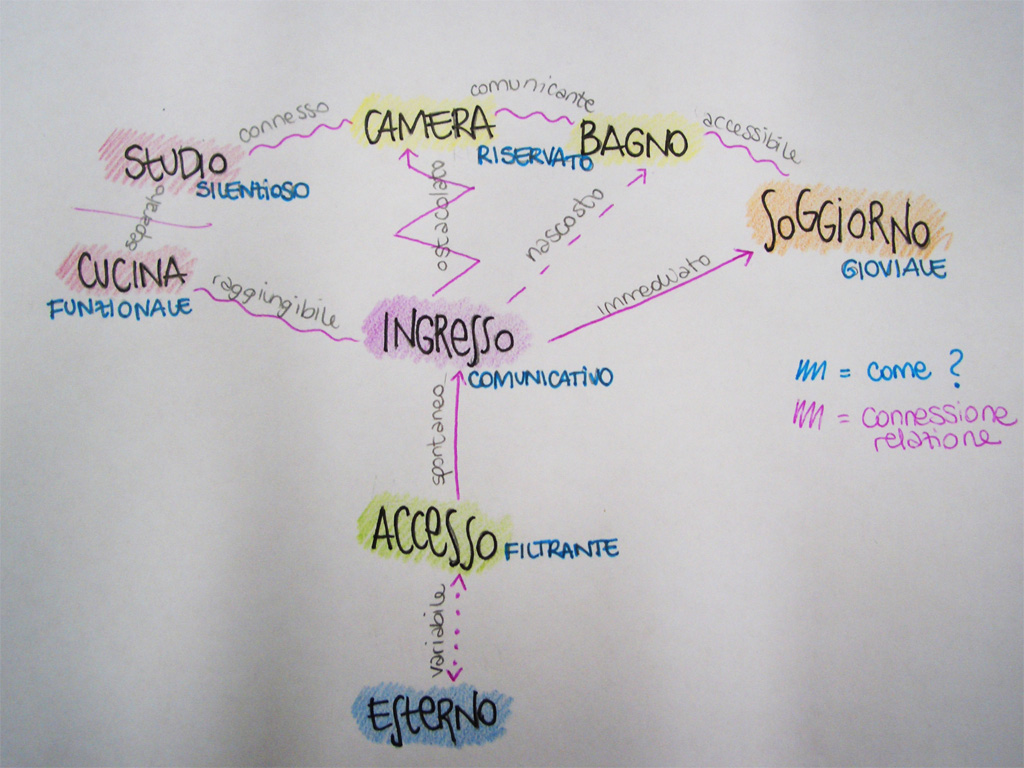 comunicante
connesso
CAMERA
accessibile
BAGNO
STUDIO
RISERVATO
SILENZIOSO
separato
ostacolato
nascosto
SOGGIORNO
GIOVIALE
CUCINA
FUNZIONALE
raggiungibile
immediato
INGRESSO
COMUNICATIVO
= come ?
= connessione
relazione
spontaneo
ACCESSO
FILTRANTE
variabile
ESTERNO